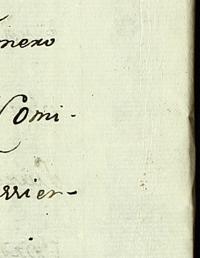 nexo
Comi-
rrier-